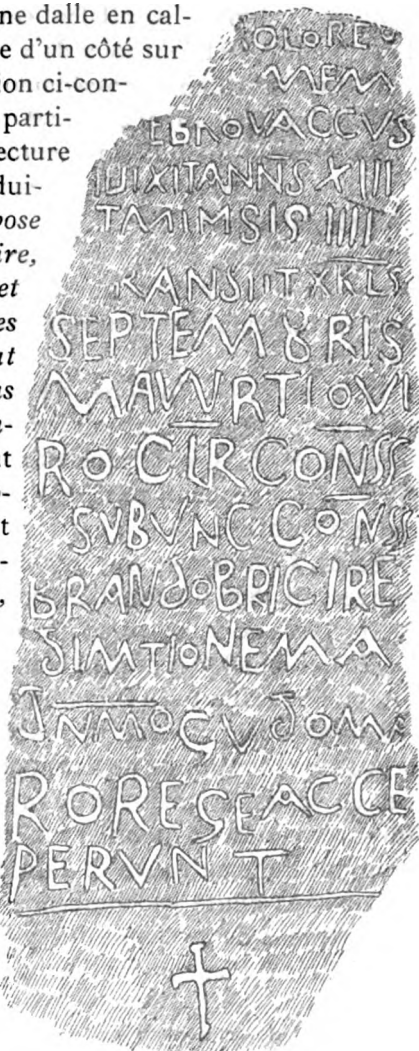 ne dalle en cal-
e d'un côté sur
ion ci-con-
parti-
ecture
dui-
pose
ire,
et
es
OLORE
MEM
EBROVACCVS
IUIXITANNS XIII
TAMIMSIS IIII
RANSIITXKLS
SEPTEMBRIS
MAVVRTIOVI
ROCLRCONSS
SVBVNC CONSS
BRANDOBRICIRE
DIMTIONEMA
DNMOGVDOMA
ROREGEACCE
PERVNT